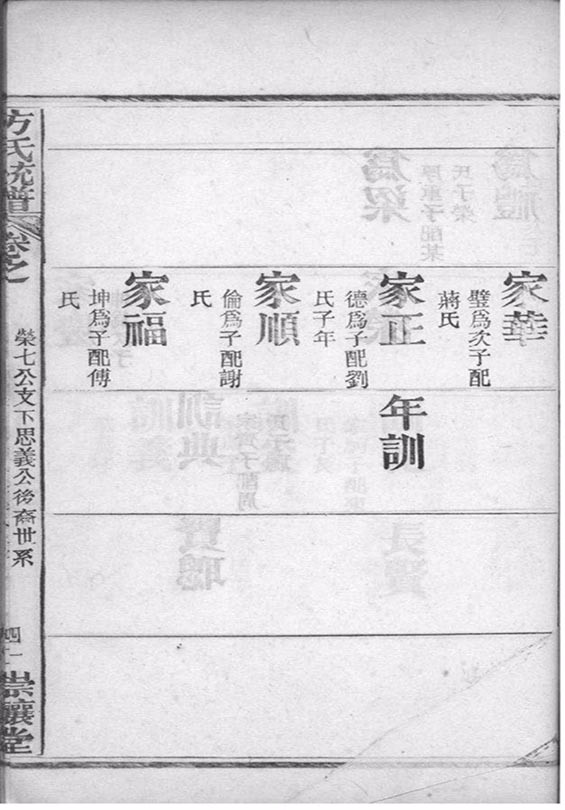 家華
璧爲次子配
蔣氏
家正
德爲子配劉
氏子年
年訓
家順
倫爲子配謝
氏
家福
坤爲子配傅
氏
方氏統譜
卷之
榮七公支下思義公後裔世系
四十一
崇讓堂